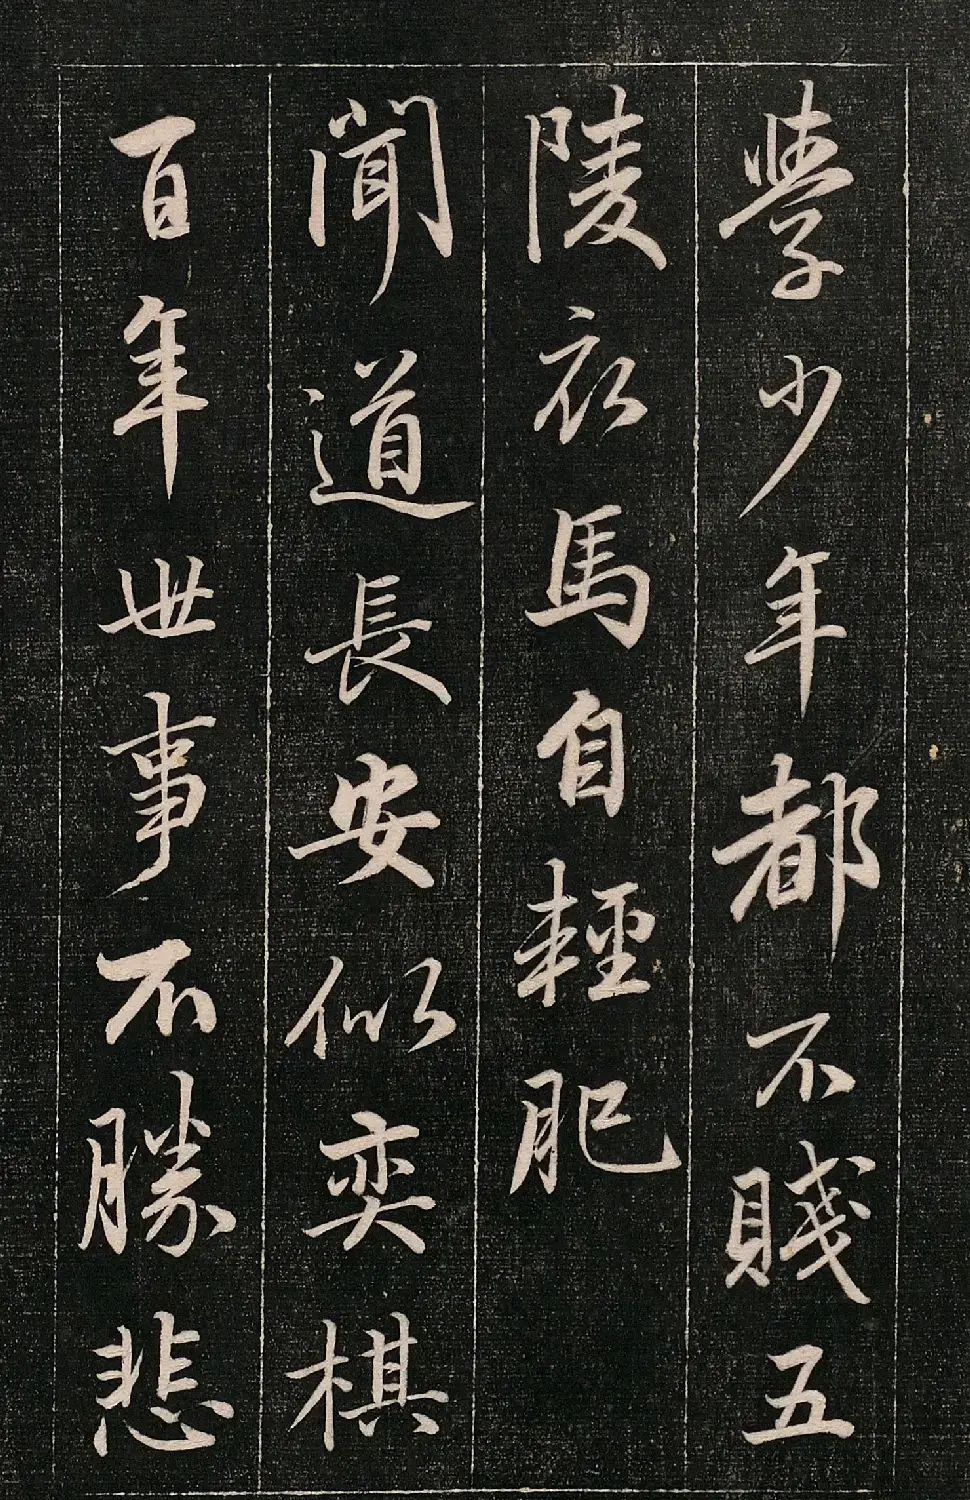 學少年都不賤五
陵衣馬自輕肥
聞道長安似奕棋
百年世事不勝悲